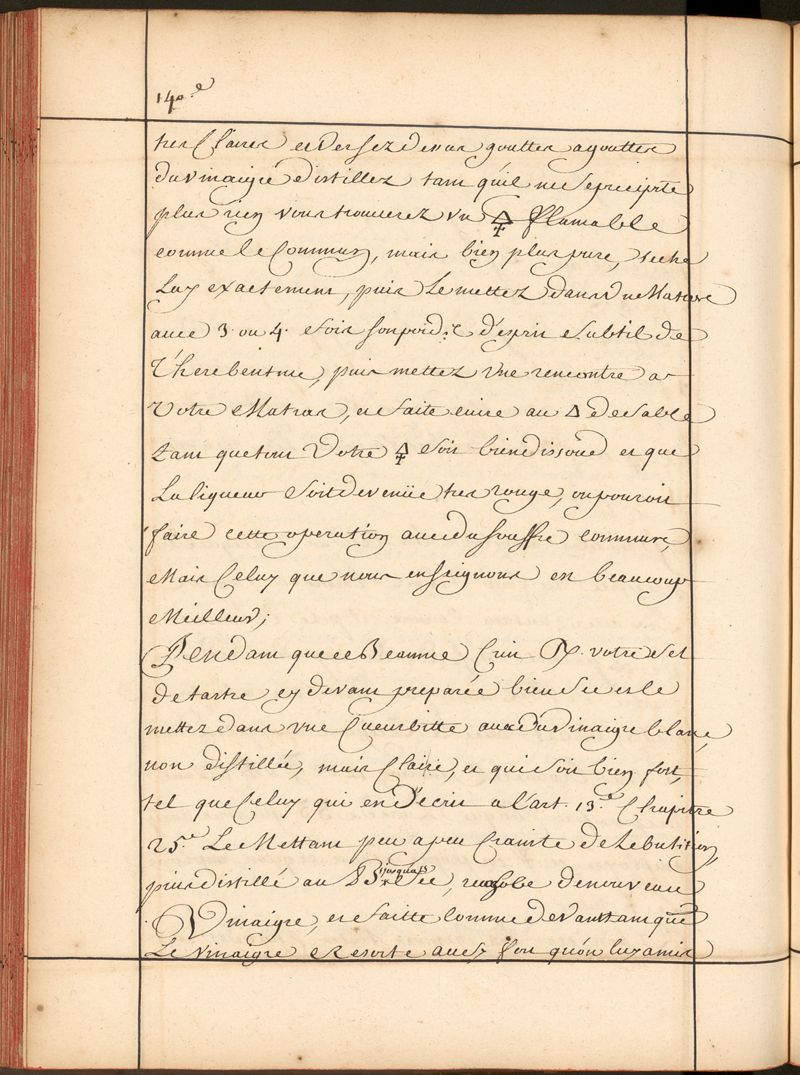 140.e
tres Claires et Versez devus goutter agoutter
du Vinaigre distillez tam quil ne se precipite
plus rien vous trouverez vn 🜍 flamable
comme le Commun, mais bien plus pure, seche
Luy exactement, puis Le mettez dans Vne Matrere
avec 3. ou 4. fois son poid.s d'esprit Subtil de
Therebentine, puis mettez Vne rencontre a
Votre Matras, et faite cuire au 🜂 de Sable
tam que tout Votre 🜍 Soit bien dissoud et que
La liqueur Soit devenüe tres rouge, on pouroit
faire cette operation avec du souffre commun,
Mais Celuy que nous enseignons est beaucoup
Meilleur;
Pendam que ce Beaume Cuit votre Sel
de tartre cy devam preparée bien Sec et le
mettez dans vne Cucurbitte avec du Vinaigre blanc,
non distillée, mais Claire, et qui Soit bien fort,
tel que Celuy qui en d'ecrit a l'art. 13.e Chapitre
25.e Le Mettam peu apeu Crainte de Lebulition,
puis distillé au B jusqu'a Sec, de nouveau
Vinaigre, et faitte Comme devant tam que
Le Vinaigre Resorte aussy fort qu'on luy a mis